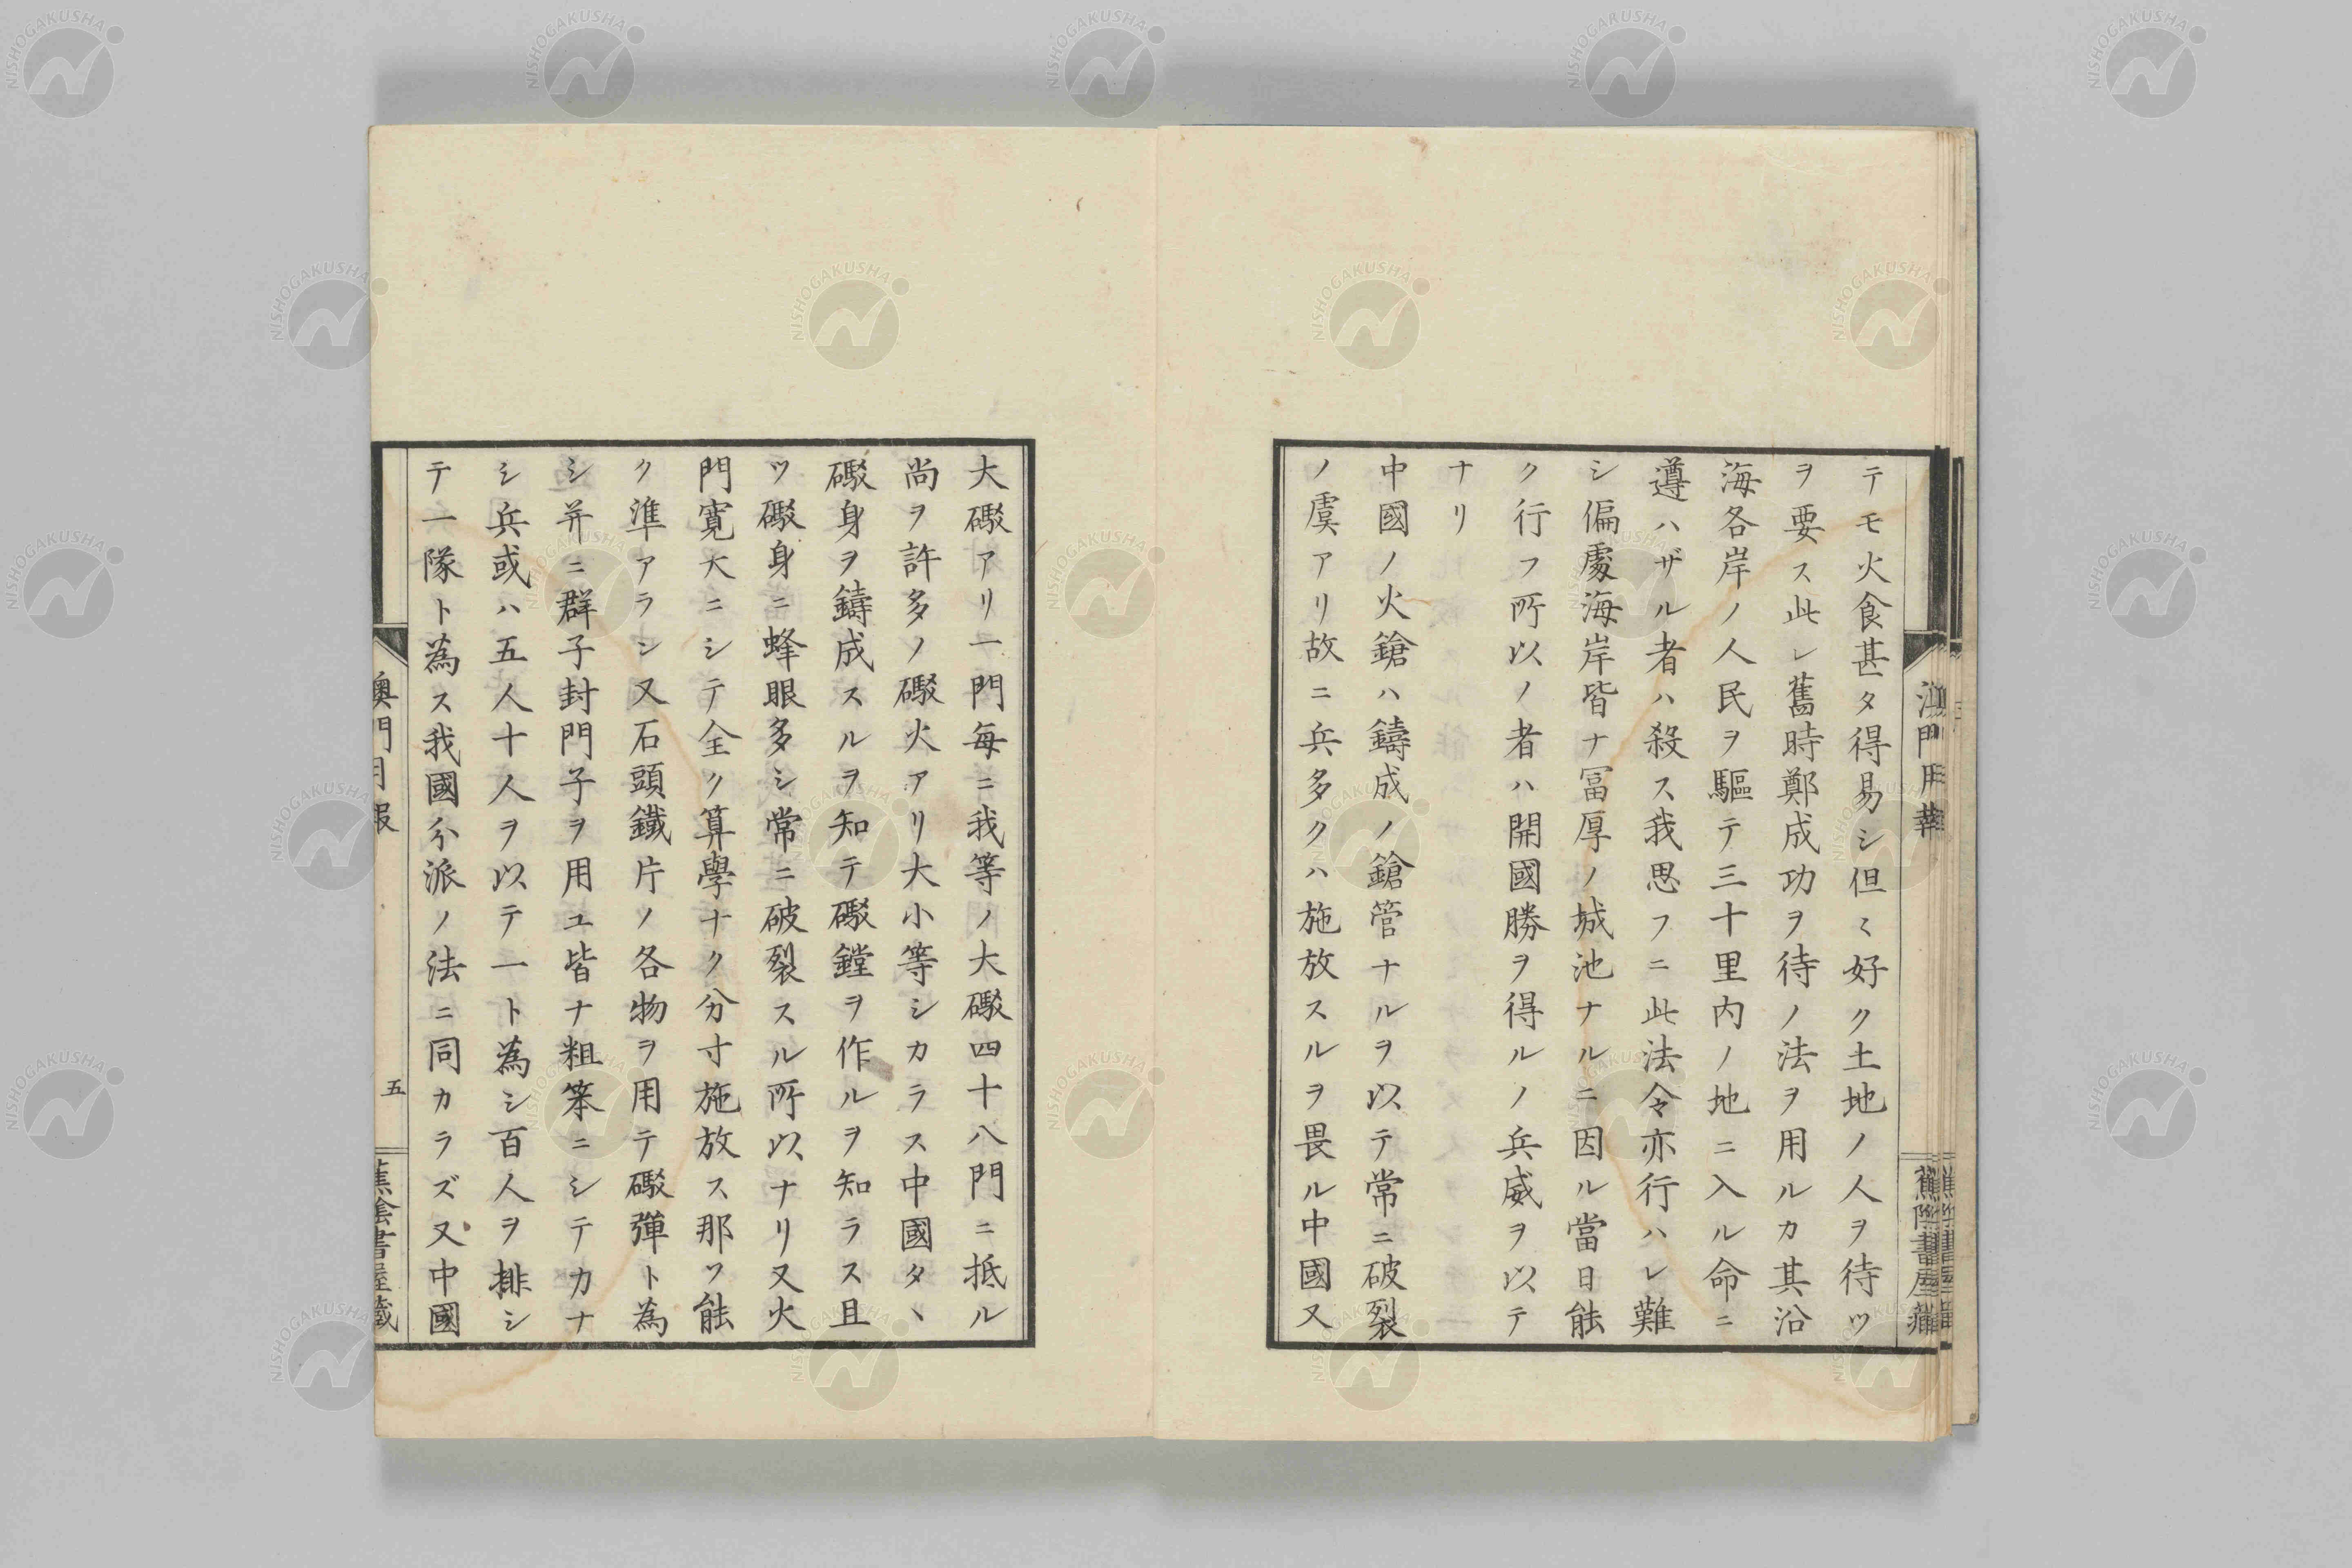 テモ火食甚タ得易シ但〻好ク土地ノ人ヲ待ツ
ヲ要ス此レ舊時鄭成功ヲ待ノ法ヲ用ルカ其沿
海各岸ノ人民ヲ驅テ三十里内ノ地ニ入ル命ニ
遵ハザル者ハ殺ス我思フニ此法令亦行ハレ難
シ偏處海岸皆ナ冨厚ノ城池ナルニ因ル當日能
ク行フ所以ノ者ハ開國勝ヲ得ルノ兵威ヲ以テ
ナリ
中國ノ火鎗ハ鑄成ノ鎗管ナルヲ以テ常ニ破裂
ノ虞アリ故ニ兵多クハ施放スルヲ畏ル中國又
大礟アリ一門毎ニ我等ノ大礟四十八門ニ抵ル
尚ヲ許多ノ礟火アリ大小等シカラス中國タヽ
礟身ヲ鑄成スルヲ知テ礟鏜ヲ作ルヲ知ラス且
ツ礟身ニ蜂眼多シ常ニ破裂スル所以ナリ又火
門寛大ニシテ全ク算學ナク分寸施放ス那ソ能
ク準アラン又石頭鐵片ノ各物ヲ用テ礟彈ト為
シ并ニ群子封門子ヲ用ユ皆ナ粗笨ニシテカナ
シ兵或ハ五人十人ヲ以テ一ト為シ百人ヲ排シ
テ一隊ト為ス我國分派ノ法ニ同カラズ又中國
澳門月報
五
蕉陰書屋藏
NISHOGAKUSHA